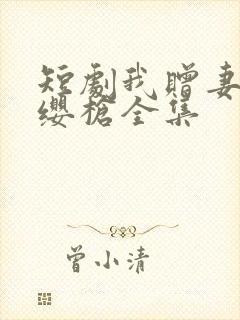 短劇我贈妻
纓槍全集
曾小清